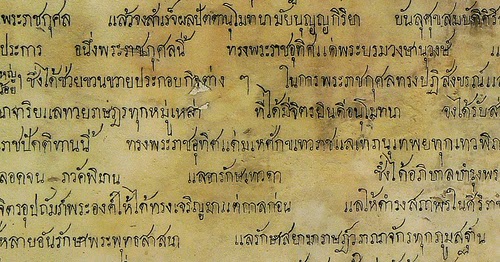 พระราชกุศล แล้วจงสำเร็จผลปัตตานุโมทนามัยบุญญกิริยา อันสุขุมสมบัติศิริ
ประการ อนึ่งพระราชกุศลนี้ ทรงพระราชอุทิศแด่พระบรมวงษานุวงษ์
ฯ ซึ่งได้ช่วยขวนขวายประกอบกิจต่าง ๆ ในการพระราชกุศลทรงปฏิสังขรณ์แ
ภาจาริยแลทวยราษฎรทุกหมู่เหล่า ที่ได้มีจิตรยินดีอนุโมทนา จงได้รับส่
ราชปัตติทานนี้ ทรงพระราชอุทิศแด่มเหศักขเทวราชแลเทพนุเทพยทุกเทวพิภ
ลอดจน ภวัคพิมาน แลอารักษเทวดา ซึ่งได้อภิบาลบำรุงพระ
จิตรอุปถัมภ์พระองค์ให้ได้ทรงเจริญมาแต่กาลก่อน แลให้ดำรงสภาพในศิริราช
หลายอันรักษาพระพุทธสาสนา แลรักษสยามราษฎรอาณาจักรทุกภูมสฐาน